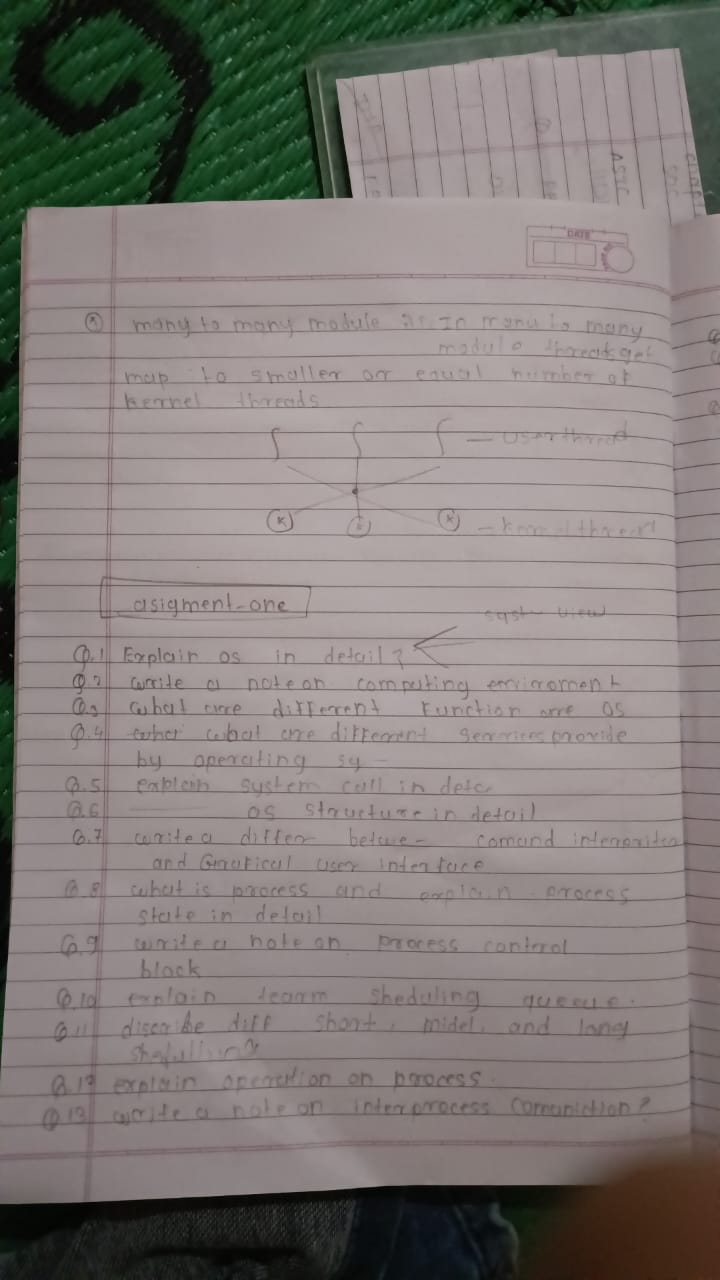 DATE
many to many module :- In manu to many
module threads get
map to smaller or equal number of
kernel threads
— user thread
K K
— kernel thread
asigment-one
view
Q.1 Explain os in detail ?
Q.2 write a note on computing enviroment
Q.3 what are different Function are OS
Q.4 what are different services provide
by operating sy -
Q.5 explain system call in deta
Q.6 os structure in detail
Q.7 write a differ betwe- comand
and Grafical user interface
Q.8 what is process and explain process
state in detail
Q.9 write a note on process control
block
Q.10 explain tearm sheduling queue.
Q.11 discribe diff short, midel, and long
Q.12 explain operation on process.
Q.13 write a note on interprocess comuniction ?